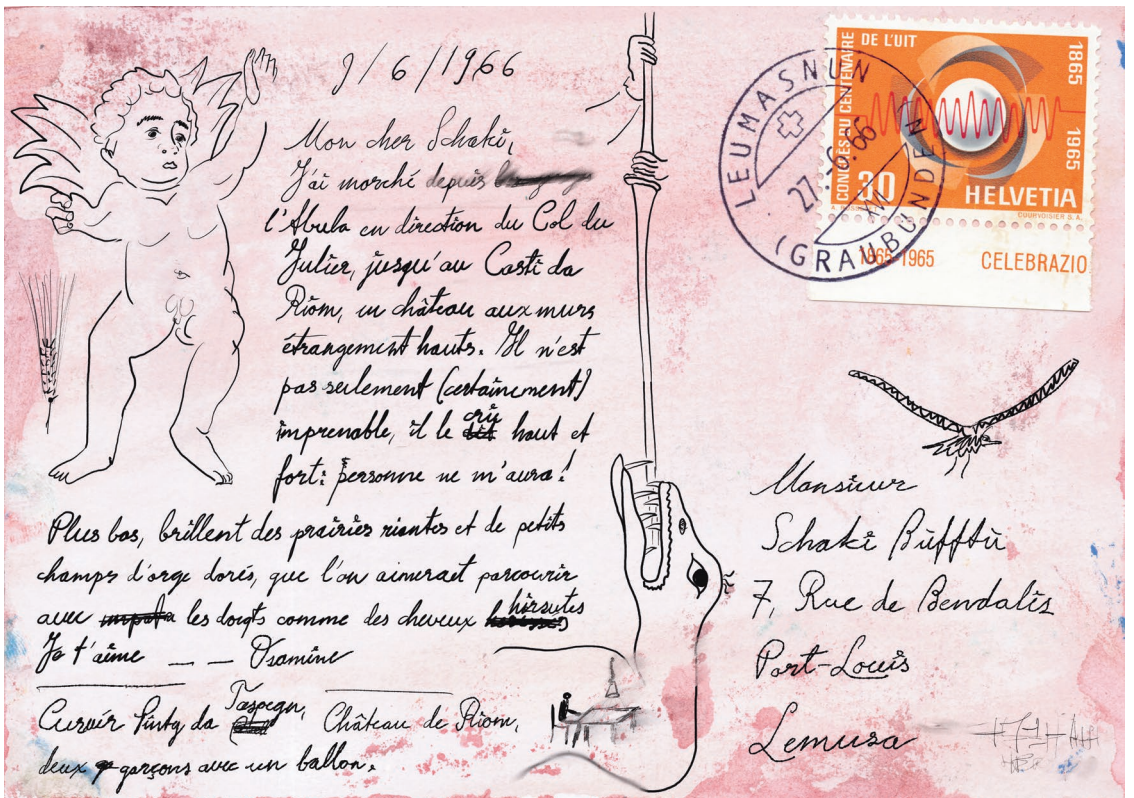 9/6/1966
Mon cher Schaki,
J'ai marché depuis
l'Abula en direction du Col du
Julier, jusqu'au Casti da
Riom, un château aux murs
étrangement hauts. Il n'est
pas seulement (certainement)
imprenable, il le crie haut et
fort: personne ne m'aura!
Plus bas, brillent des prairies riantes et de petits
champs d'orge dorés, que l'on aimerait parcourir
avec les doigts comme des cheveux hirsutes
Je t'aime — — Osamine
Curvér Pintg da Taspegn, Château de Riom,
deux garçons avec un ballon.
CONGRÈS DU CENTENAIRE
DE L'UIT
1865
1965
30
HELVETIA
COURVOISIER S.A.
1865-1965 CELEBRAZIO
LEUMASNUN
27.6.66
XII
(GRAUBÜNDEN
Monsieur
Schaki Büfftü
7, Rue de Bendalis
Port-Louis
Lemusa